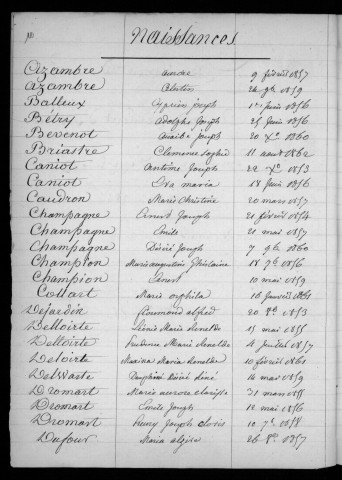 Naissances
Azambre aurore 9 février 1857
Azambre 26 9bre 1859
Balleux Cyprien joseph 1er juin 1856
Bétry Adolphe Joseph 25 juin 1856
Bevenot Joseph 20 Xe 1860
Briastre Clemence Sophie 11 aout 1862
Caniot Antoine Joseph 22 Xe 1853
Caniot maria 18 juin 1856
Caudron Marie Christine 20 mars 1857
Champagne Ernest Joseph 21 février 1854
Champagne Emile 21 mai 1857
Champagne Désiré Joseph 7 9bre 1860
Champion Marie augustine Ghislaine 18 7bre 1856
Champion Ernest 10 mai 1859
Collart Marie orphila 16 janvier 1861
Dejardin Raimond alfred 20 8bre 1853
Delloirte Marie 15 mai 1855
Delloirte Marie 4 juillet 1857
Deloirte Maria 10 février 1861
Delwarte Désiré 14 mai 1859
Dromart Marie aurore clarisse 31 mars 1855
Dromart Emile Joseph 12 mai 1856
Dromart Henry Joseph clovis 10 7bre 1858
Dufour Maria algire 26 8bre 1857